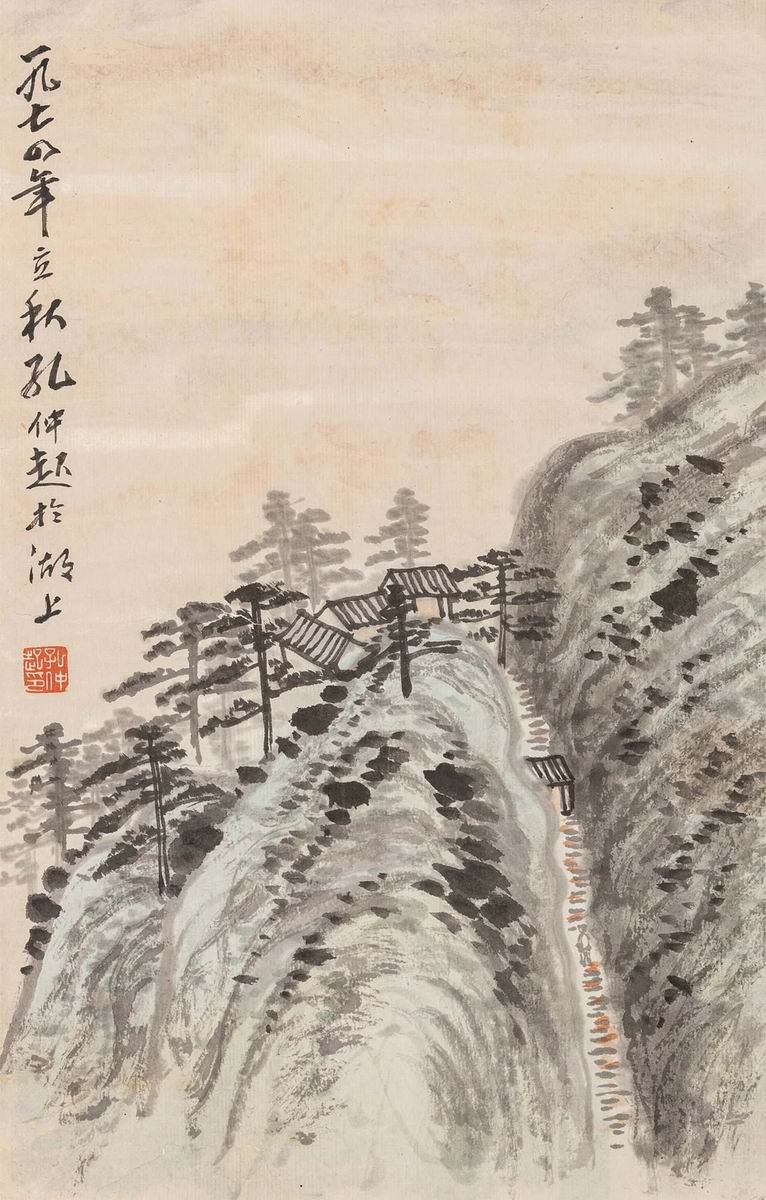 一九七四年立秋孔仲起於湖上
孔仲
起印